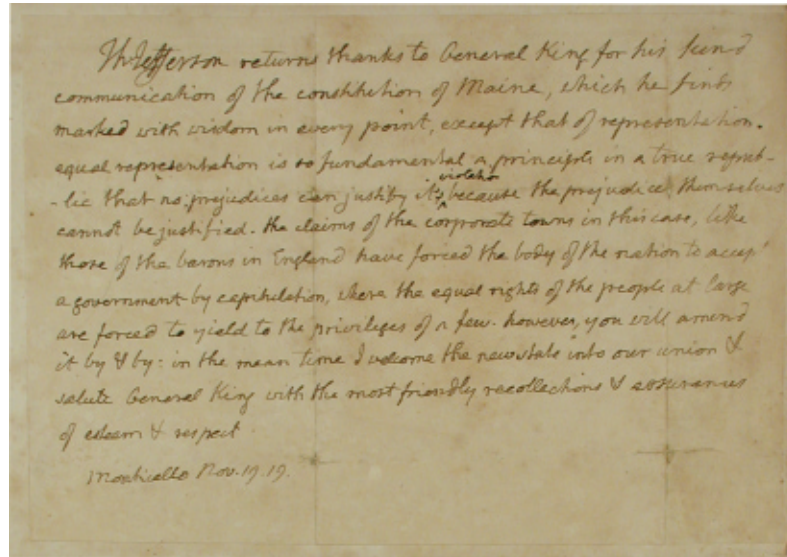 Th Jefferson returns thanks to General King for his kind
communication of the constitution of Maine, which he finds
marked with wisdom in every point, except that of representation.
equal representation is so fundamental a principle in a true repub-
-lic that no prejudices can justify it's violation because the prejudices themselves
cannot be justified. the claims of the corporate towns in this case, like
those of the barons in England have forced the body of the nation to accept
a government by capitulation, where the equal rights of the people at large
are forced to yield to the privileges of a few. however, you will amend
it by & by: in the mean time I welcome the new state into our union &
salute General King with the most friendly recollections & assurances
of esteem & respect.
Monticello Nov. 19. 19.